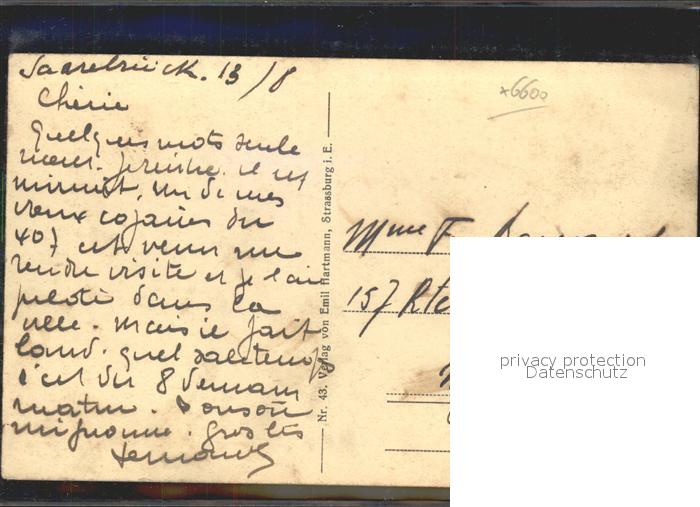 Saarebrück. 13/8
Chérie
Quelques mots seule
ment. il est
minuit, un de mes
vieux copains du
407 est venu me
rendre visite et je l'ai
piloté dans la
ville. mais il fait
lourd. quel sale temps
c'est du 8 demain
matin. Bonsoir
mignonne. Grosses
Nr. 43. Verlag von Emil Hartmann, Strassburg i. E.
x6600
Mme F
157 Rte
privacy protection
Datenschutz